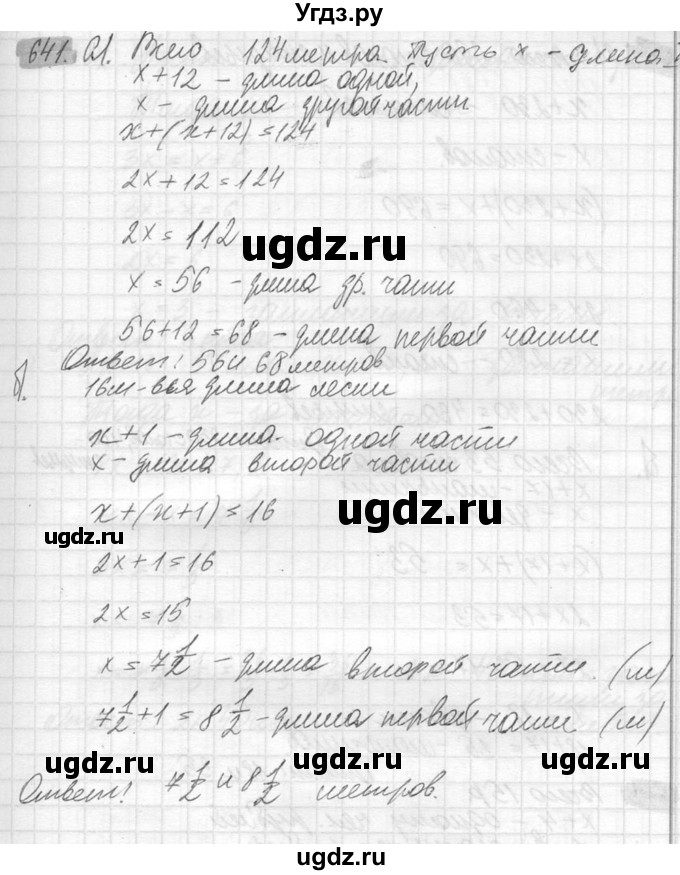 Угдз.ру
641. а). Всего 124 метра. Пусть x – длина,
x+12 – длина одной,
x – длина другой части
x+(x+12)=124
2x+12=124
2x=112
ugdz.ru
x=56 – длина др. части
56+12=68 – длина первой части
Ответ: 56 и 68 метров
б). 16м – вся длина лески
x+1 – длина одной части
x – длина второй части
x+(x+1)=16
ugdz.ru
ugdz.ru
2x+1=16
2x=15
x=7 1/2 – длина второй части. (м)
7 1/2+1=8 1/2 – длина первой части (м)
ugdz.ru
ugdz.ru
ugdz.ru
Ответ: 7 1/2 и 8 1/2 метров.
ugdz.ru